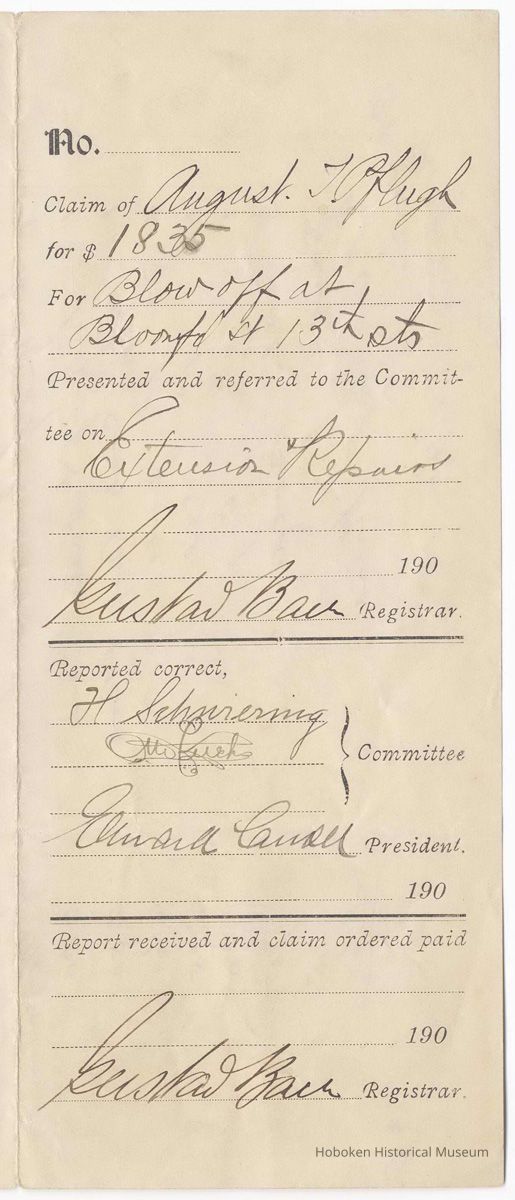 No.
Claim of August. Pflugh
for $ 1835
For Blow off at
Bloomfd St 13th sts
Presented and referred to the Commit-
tee on
Extension & Repairs
190
Gustav Baer Registrar.
Reported correct,
H Schwiering
Committee
Edward President.
190
Report received and claim ordered paid
190
Gustav Baer Registrar.
Hoboken Historical Museum